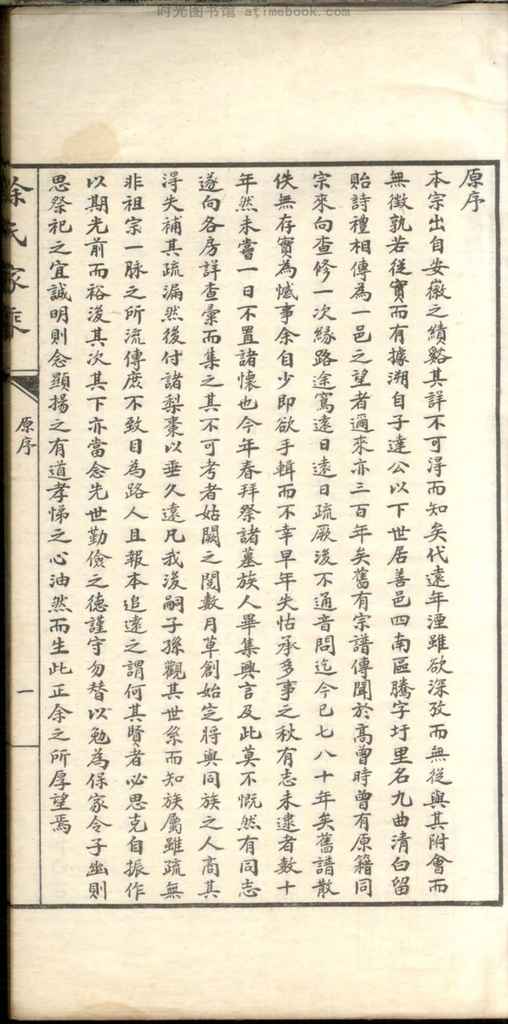 时光图书馆 atimebook.com
原序
本宗出自安徽之績谿其詳不可淂而知矣代遠年湮雖欲深攷而無從與其附會而
無徵孰若從實而有據溯自子達公以下世居善邑四南區騰字圩里名九曲清白留
貽詩禮相傳為一邑之望者邇來亦三百年矣舊有宗譜傳聞於髙曾時曾有原籍同
宗來向查修一次緣路途寫遠日遠日疏厥後不通音問迄今已七八十年矣舊譜散
佚無存實為憾事余自少即欲手輯而不幸早年失怙承多事之秋有志未逮者數十
年然未嘗一日不置諸懷也今年春拜祭諸墓族人畢集興言及此莫不慨然有同志
遂向各房詳查彙而集之其不可考者姑闕之閱數月草創始定將與同族之人商其
淂失補其疏漏然後付諸梨棗以垂久遠凡我後嗣子孫觀其世系而知族屬雖疏無
非祖宗一脉之所流傳庶不致目為路人且報本追遠之謂何其賢者必思克自振作
以期光前而裕後其次其下亦當念先世勤儉之德謹守勿替以勉為保家令子幽則
思祭祀之宜誠明則念顯揚之有道孝悌之心油然而生此正余之所厚望焉
徐氏家乘
原序
一